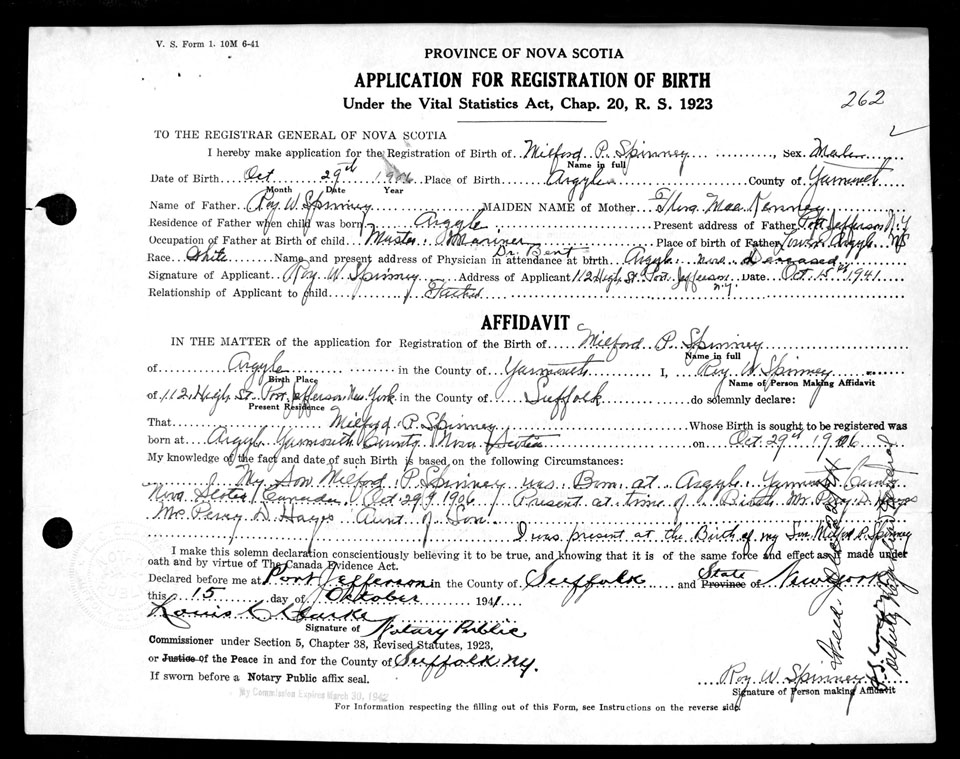 V. S. Form 1. 10M 6-41
PROVINCE OF NOVA SCOTIA
APPLICATION FOR REGISTRATION OF BIRTH
Under the Vital Statistics Act, Chap. 20, R. S. 1923
262
TO THE REGISTRAR GENERAL OF NOVA SCOTIA
I hereby make application for the Registration of Birth of Milford P. Spinney, Sex Male
Name in full
Date of Birth Oct 29th 1906 Place of Birth Argyle County of Yarmouth
Month Date Year
Name of Father Roy W Spinney MAIDEN NAME of Mother Mae Kenney
Residence of Father when child was born Argyle Present address of Father Port Jefferson N.Y
Occupation of Father at Birth of child Master Mariner Place of birth of Father Lower Argyle NS
Race White Name and present address of Physician in attendance at birth Dr. Bent Argyle Nova Deceased
Signature of Applicant Roy W. Spinney Address of Applicant 112 High St Port Jefferson N.Y. Date Oct 15th 1941
Relationship of Applicant to child Father
AFFIDAVIT
IN THE MATTER of the application for Registration of the Birth of Milford P. Spinney
Name in full
of Argyle in the County of Yarmouth I, Roy W Spinney
Birth Place Name of Person Making Affidavit
of 112 High St Port Jefferson New York in the County of Suffolk do solemnly declare:
Present Residence
That Milford P. Spinney Whose Birth is sought to be registered was
born at Argyle Yarmouth County Nova Scotia on Oct 29th 1906
My knowledge of the fact and date of such Birth is based on the following Circumstances:
My Son Milford P. Spinney was Born at Argyle Yarmouth County
Nova Scotia Canada Oct 29th 1906 Present at time of Birth Mr Percy D. Hayes
Mrs Percy D. Hayes Aunt of Son.
I was present at the Birth of my Son Milford P. Spinney
I make this solemn declaration conscientiously believing it to be true, and knowing that it is of the same force and effect as if made under
oath and by virtue of The Canada Evidence Act.
Declared before me at Port Jefferson in the County of Suffolk and State Province of New York
this 15 day of Oktober 1941
Louis C Clarke
Signature of Notary Public
Commissioner under Section 5, Chapter 38, Revised Statutes, 1923,
or Justice of the Peace in and for the County of Suffolk N.Y.
If sworn before a Notary Public affix seal.
My Commission Expires March 30, 1942
Roy W Spinney
Signature of Person making Affidavit
For Information respecting the filling out of this Form, see Instructions on the reverse side.
Deputy Registrar General